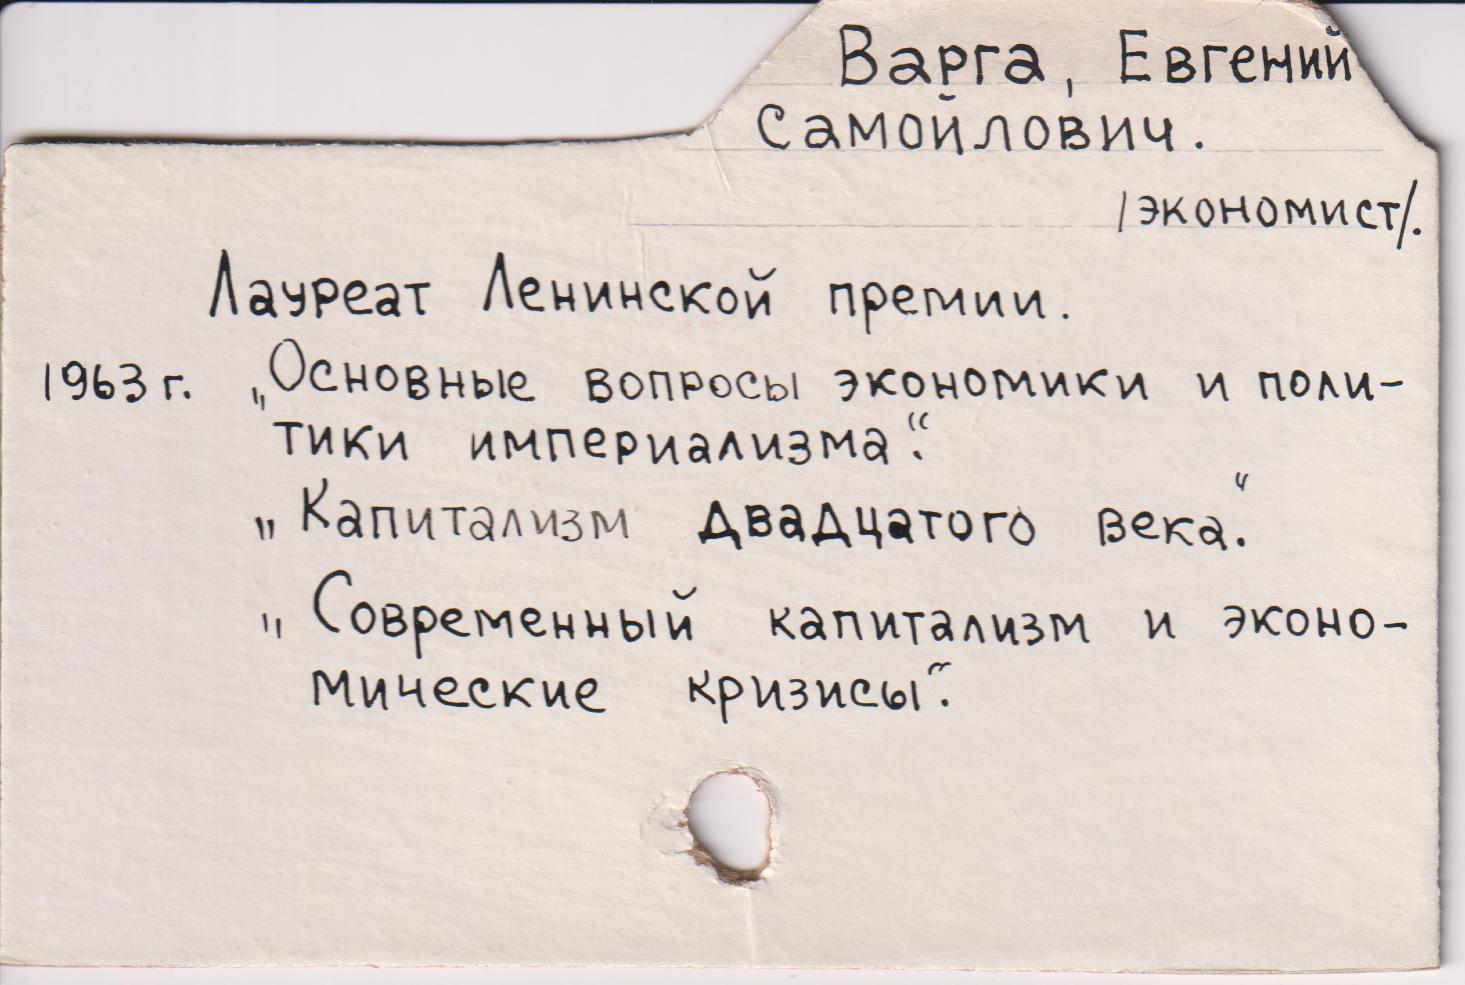 Варга, Евгений
Самойлович.
/экономист/.
Лауреат Ленинской премии.
1963 г. „Основные вопросы экономики и поли-
тики империализма“.
„Капитализм двадцатого века“.
„Современный капитализм и эконо-
мические кризисы“.